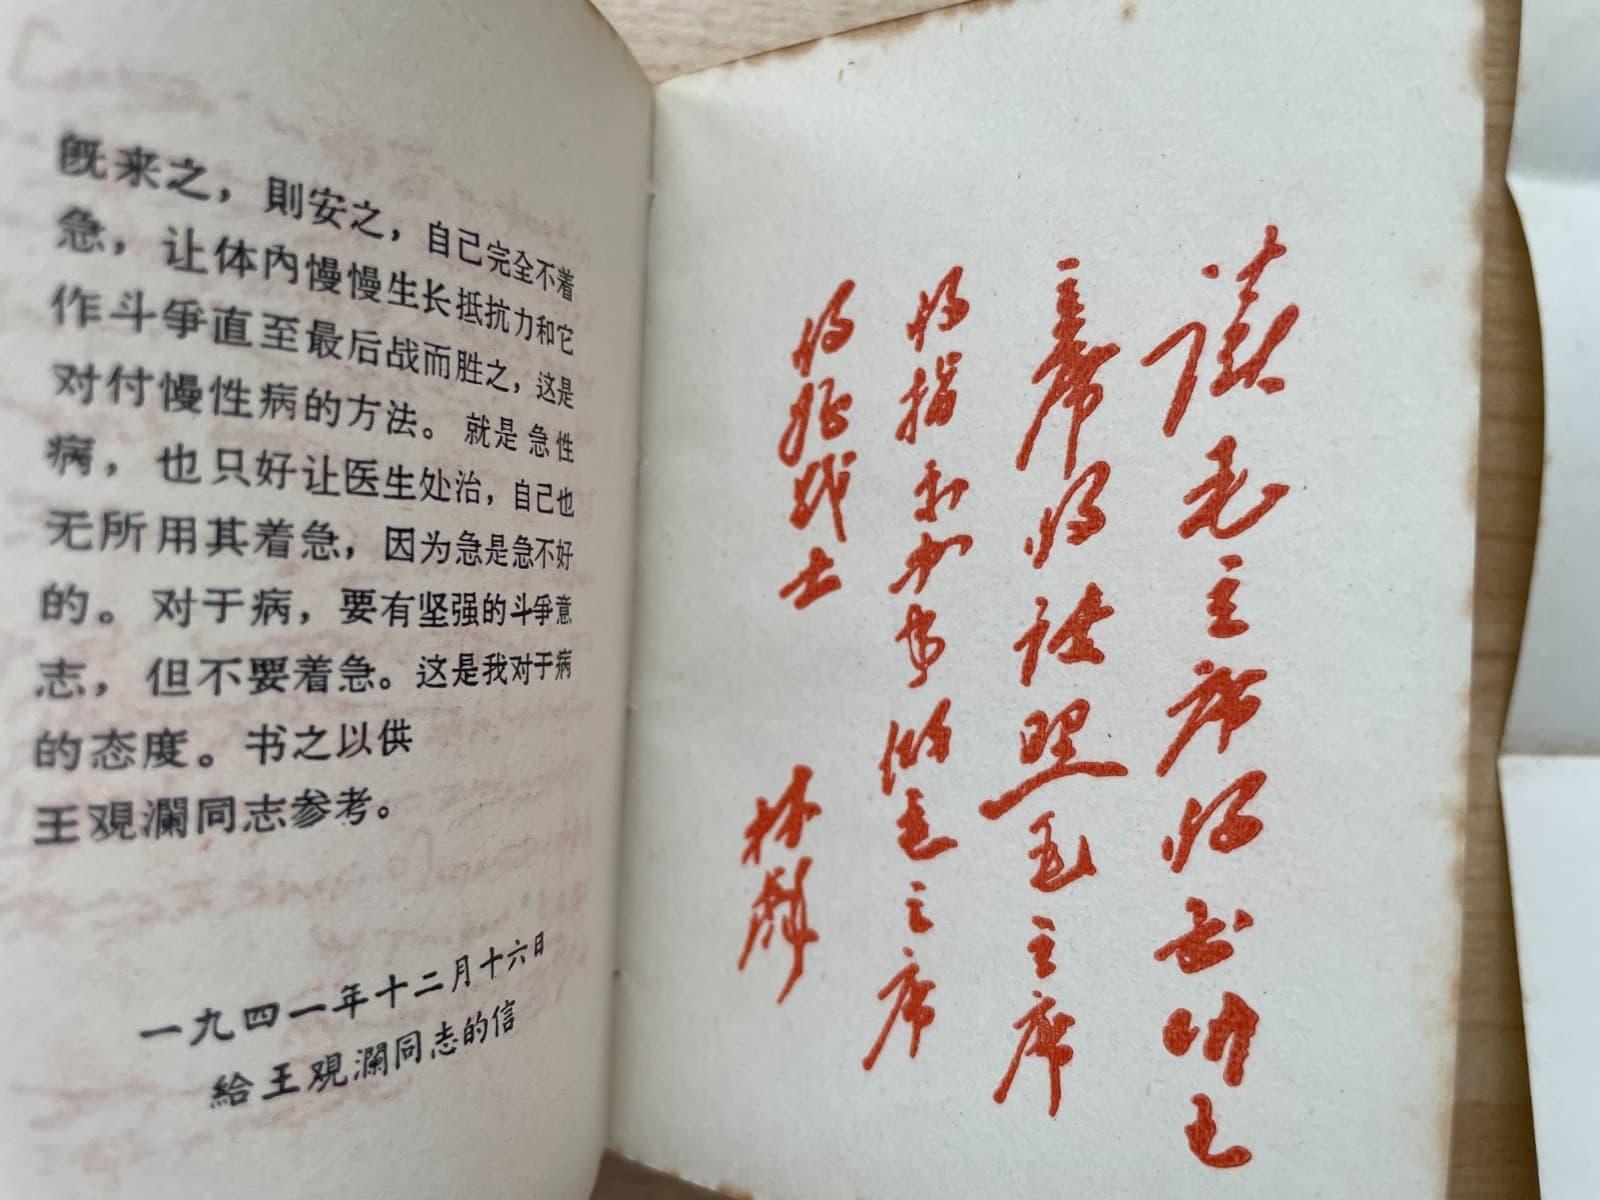 既来之，則安之，自己完全不着
急，让体内慢慢生长抵抗力和它
作斗爭直至最后战而胜之，这是
对付慢性病的方法。就是急性
病，也只好让医生处治，自己也
无所用其着急，因为急是急不好
的。对于病，要有坚强的斗爭意
志，但不要着急。这是我对于病
的态度。书之以供
王覌瀾同志参考。
一九四一年十二月十六日
給王覌瀾同志的信
读毛主席的书听毛
主席的话照毛主席
的指示办事做毛主席
的好战士
林彪